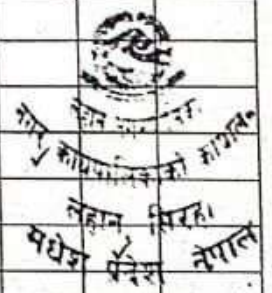 लहान
नगर कार्यपालिकाको कार्यालय
लहान सिरहा
मधेश प्रदेश नेपाल